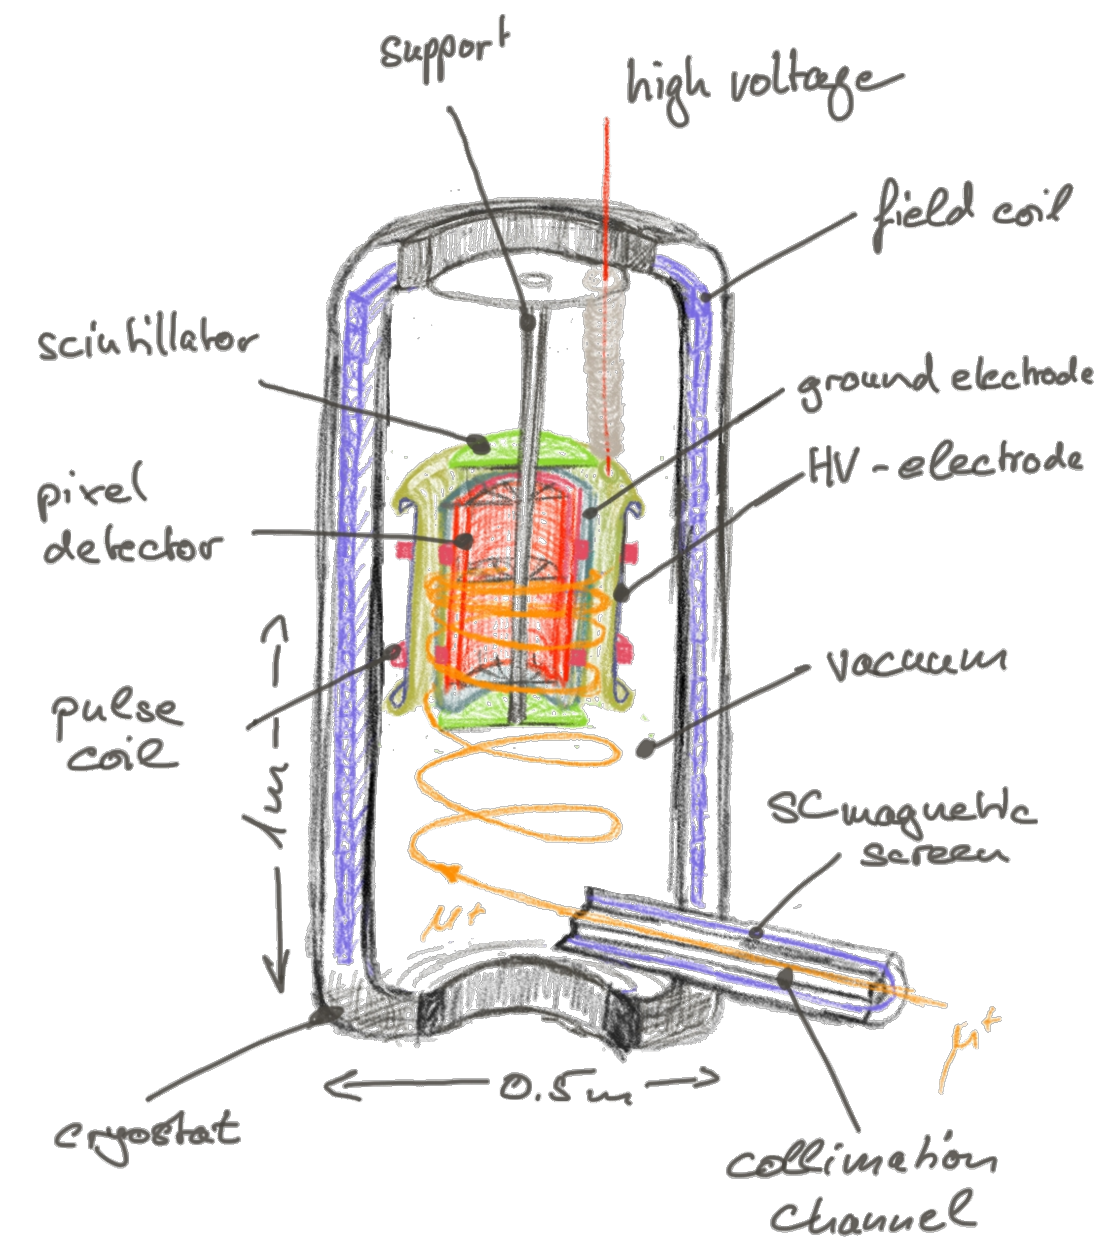 support
high voltage
field coil
scintillator
ground electrode
HV-electrode
pixel
detector
pulse
coil
1m
vacuum
SC magnetic
screen
μ+
μ+
0.5m
cryostat
collimation
channel